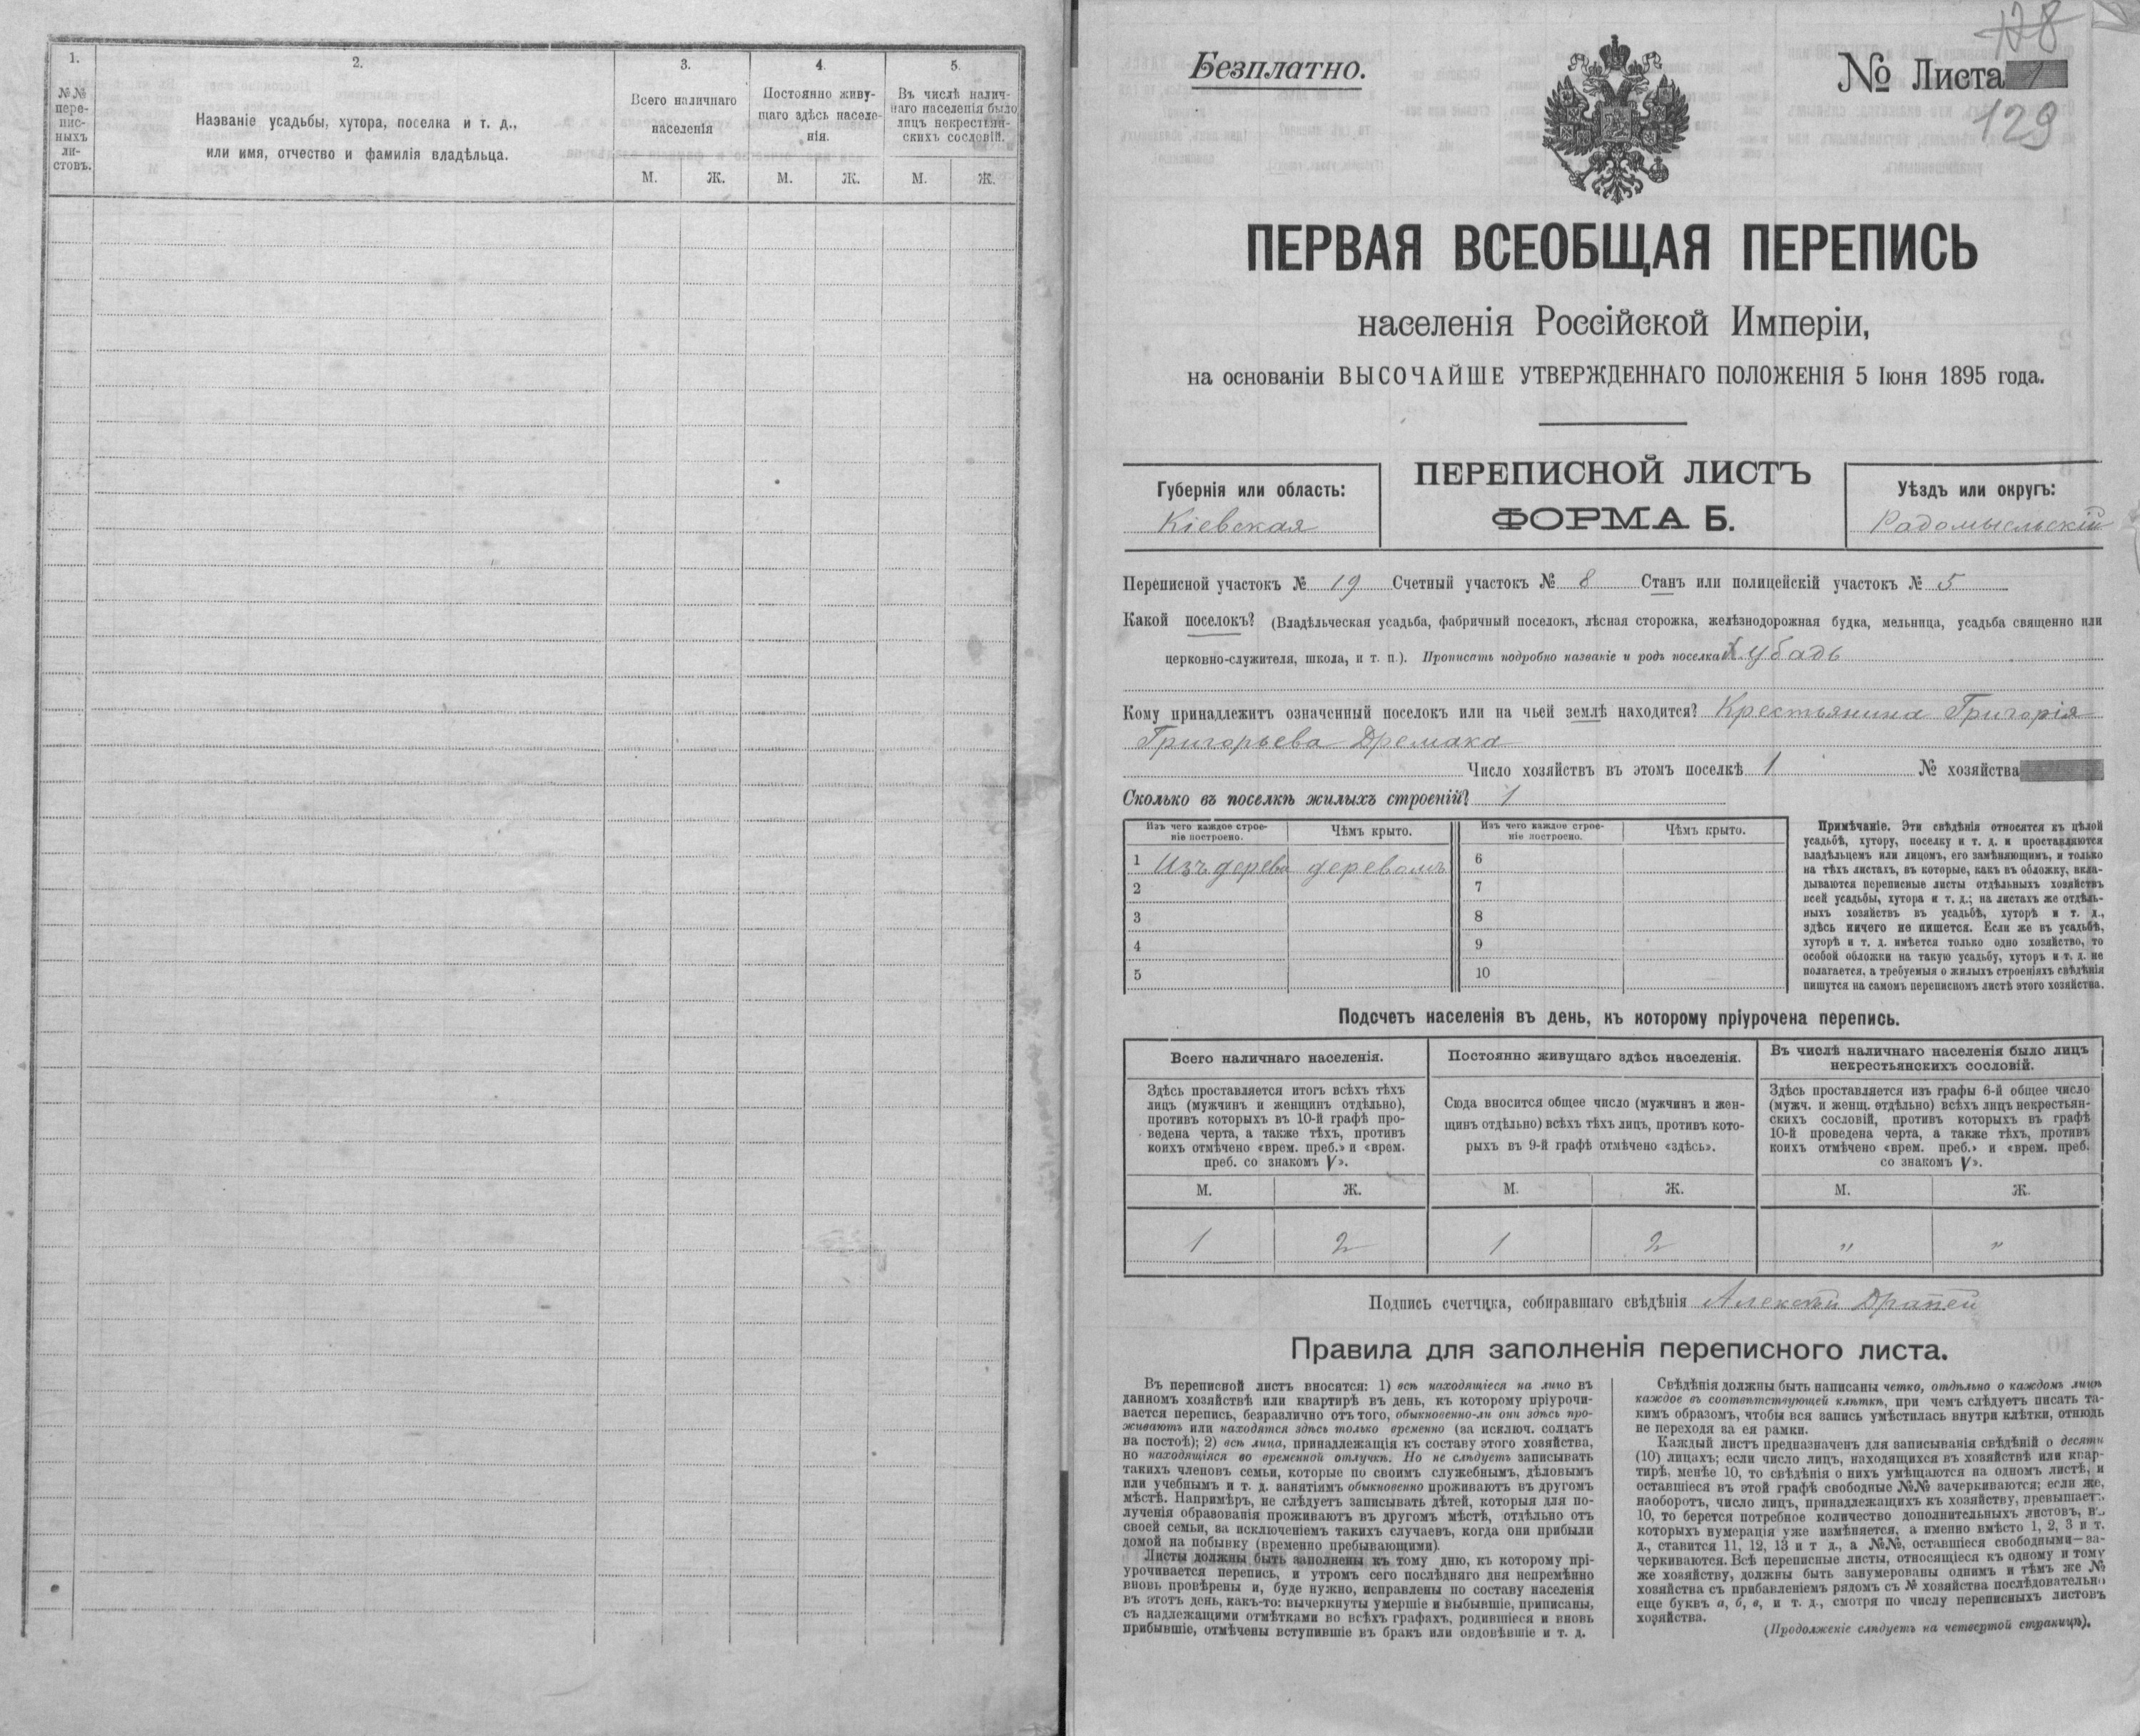 1.
2.
3.
4.
5.
№№ пере-
пис-
ныхъ
ли-
стовъ.
Названіе усадьбы, хутора, поселка и т. д.,
или имя, отчество и фамилія владѣльца.
Всего наличнаго
населенія
Постоянно живу-
щаго здѣсь населе-
нія.
Въ числѣ налич-
наго населенія было
лицъ некрестьян-
скихъ сословій.
М. Ж. М. Ж. М. Ж.
128
Безплатно.
№ Листа 1
129
ПЕРВАЯ ВСЕОБЩАЯ ПЕРЕПИСЬ
населенія Россійской Имперіи,
на основаніи ВЫСОЧАЙШЕ УТВЕРЖДЕННАГО ПОЛОЖЕНІЯ 5 Іюня 1895 года.
Губернія или область:
Кіевская
ПЕРЕПИСНОЙ ЛИСТЪ
ФОРМА Б.
Уѣздъ или округъ:
Радомысльскій
Переписной участокъ № 19 Счетный участокъ № 8 Станъ или полицейскій участокъ № 5
Какой поселокъ? (Владѣльческая усадьба, фабричный поселокъ, лѣсная сторожка, желѣзнодорожная будка, мельница, усадьба священно или
церковно-служителя, школа, и т. п.). Прописать подробно названіе и родъ поселка Х. Убадь
Кому принадлежитъ означенный поселокъ или на чьей землѣ находится? Крестьянина Григорія
Григорьева Дремака
Число хозяйствъ въ этомъ поселкѣ 1 № хозяйства
Сколько въ поселкѣ жилыхъ строеній? 1
Изъ чего каждое строе-
ніе построено.
Чѣмъ крыто.
Изъ чего каждое строе-
ніе построено.
Чѣмъ крыто.
1 Изъ дерева деревомъ 6
2 7
3 8
4 9
5 10
Примѣчаніе. Эти свѣдѣнія относятся къ цѣлой
усадьбѣ, хутору, поселку и т. д. и проставляются
владѣльцемъ или лицомъ, его замѣняющимъ, и только
на тѣхъ листахъ, въ которые, какъ въ обложку, вкла-
дываются переписные листы отдѣльныхъ хозяйствъ
всей усадьбы, хутора и т. д.; на листахъ же отдѣль-
ныхъ хозяйствъ въ усадьбѣ, хуторѣ и т. д.,
здѣсь ничего не пишется. Если же въ усадьбѣ,
хуторѣ и т. д. имѣется только одно хозяйство, то
особой обложки на такую усадьбу, хуторъ и т. д. не
полагается, а требуемыя о жилыхъ строеніяхъ свѣдѣнія
пишутся на самомъ переписномъ листѣ этого хозяйства.
Подсчетъ населенія въ день, къ которому пріурочена перепись.
Всего наличнаго населенія.
Здѣсь проставляется итогъ всѣхъ тѣхъ
лицъ (мужчинъ и женщинъ отдѣльно),
противъ которыхъ въ 10-й графѣ про-
ведена черта, а также тѣхъ, противъ
коихъ отмѣчено «врем. преб.» и «врем.
преб. со знакомъ V».
Постоянно живущаго здѣсь населенія.
Сюда вносится общее число (мужчинъ и жен-
щинъ отдѣльно) всѣхъ тѣхъ лицъ, противъ кото-
рыхъ въ 9-й графѣ отмѣчено «здѣсь».
Въ числѣ наличнаго населенія было лицъ
некрестьянскихъ сословій.
Здѣсь проставляется изъ графы 6-й общее число
(мужч. и женщ. отдѣльно) всѣхъ лицъ некрестьян-
скихъ сословій, противъ которыхъ въ графѣ
10-й проведена черта, а также тѣхъ, противъ
коихъ отмѣчено «врем. преб.» и «врем. преб.
со знакомъ V».
М. Ж. М. Ж. М. Ж.
1 2 1 2 „ „
Подпись счетчика, собиравшаго свѣдѣнія Алексѣй Драпей
Правила для заполненія переписного листа.
Въ переписной листъ вносятся: 1) всѣ находящіеся на лицо въ
данномъ хозяйствѣ или квартирѣ въ день, къ которому пріурочи-
вается перепись, безразлично отъ того, обыкновенно-ли они здѣсь про-
живаютъ или находятся здѣсь только временно (за исключ. солдатъ
на постоѣ); 2) всѣ лица, принадлежащія къ составу этого хозяйства,
но находящіяся во временной отлучкѣ. Но не слѣдуетъ записывать
такихъ членовъ семьи, которые по своимъ служебнымъ, дѣловымъ
или учебнымъ и т. д. занятіямъ обыкновенно проживаютъ въ другомъ
мѣстѣ. Напримѣръ, не слѣдуетъ записывать дѣтей, которыя для по-
лученія образованія проживаютъ въ другомъ мѣстѣ, отдѣльно отъ
своей семьи, за исключеніемъ такихъ случаевъ, когда они прибыли
домой на побывку (временно пребывающими).
Листы должны быть заполнены къ тому дню, къ которому прі-
урочивается перепись, и утромъ сего послѣдняго дня непремѣнно
вновь провѣрены и, буде нужно, исправлены по составу населенія
въ этотъ день, какъ-то: вычеркнуты умершіе и выбывшіе, приписаны,
съ надлежащими отмѣтками во всѣхъ графахъ, родившіеся и вновь
прибывшіе, отмѣчены вступившіе въ бракъ или овдовѣвшіе и т. д.
Свѣдѣнія должны быть написаны четко, отдѣльно о каждомъ лицѣ
каждое въ соотвѣтствующей клѣткѣ, при чемъ слѣдуетъ писать та-
кимъ образомъ, чтобы вся запись умѣстилась внутри клѣтки, отнюдь
не переходя за ея рамки.
Каждый листъ предназначенъ для записыванія свѣдѣній о десяти
(10) лицахъ; если число лицъ, находящихся въ хозяйствѣ или квар-
тирѣ, менѣе 10, то свѣдѣнія о нихъ умѣщаются на одномъ листѣ, и
оставшіеся въ этой графѣ свободные №№ вачеркиваются; если же,
наоборотъ, число лицъ, принадлежащихъ къ хозяйству, превышаетъ
10, то берется потребное количество дополнительныхъ листовъ, въ
которыхъ нумерація уже измѣняется, а именно вмѣсто 1, 2, 3 и т.
д., ставится 11, 12, 13 и т д., а №№, оставшіеся свободными—за-
черкиваются. Всѣ переписные листы, относящіеся къ одному и тому
же хозяйству, должны быть занумерованы однимъ и тѣмъ же №
хозяйства съ прибавленіемъ рядомъ съ № хозяйства послѣдовательно
еще буквъ а, б, в, и т. д., смотря по числу переписныхъ листовъ
хозяйства.
(Продолженіе слѣдуетъ на четвертой страницѣ).